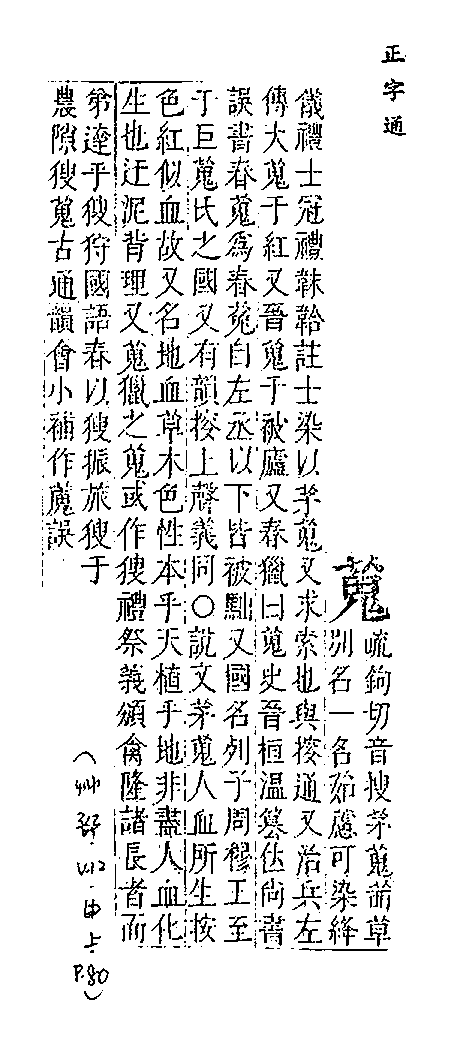 正字通
蒐
疏鉤切音搜茅蒐蒨草
別名一名茹藘可染絳
儀禮士冠禮韎韐註士染以茅蒐又求索也與搜通又治兵左
傳大蒐于紅又晉蒐于被廬又春獵曰蒐史晉桓溫篡位尚書
誤書春蒐爲春菟自左丞以下皆被黜又國名列子周穆王至
于巨蒐氏之國又有韻搜上聲義同○說文茅蒐人血所生按
色紅似血故又名地血草木色性本乎天植乎地非盡人血化
生也迂泥背理又蒐獵之蒐或作獀禮祭義頒禽隆諸長者而
弟達乎獀狩國語春以獀振旅獀于
農隙獀蒐古通韻會小補作誤
(艸部·申上·P.80)